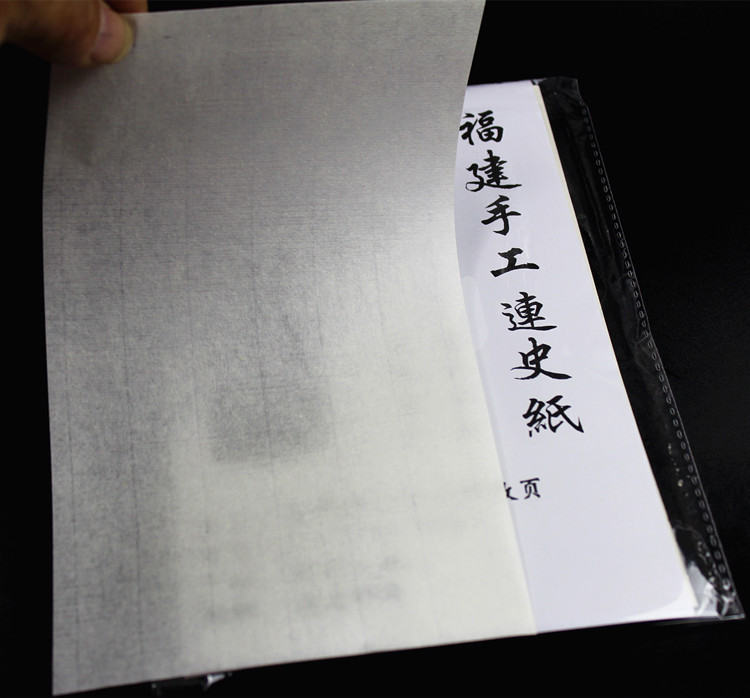 福建手工連史紙
页